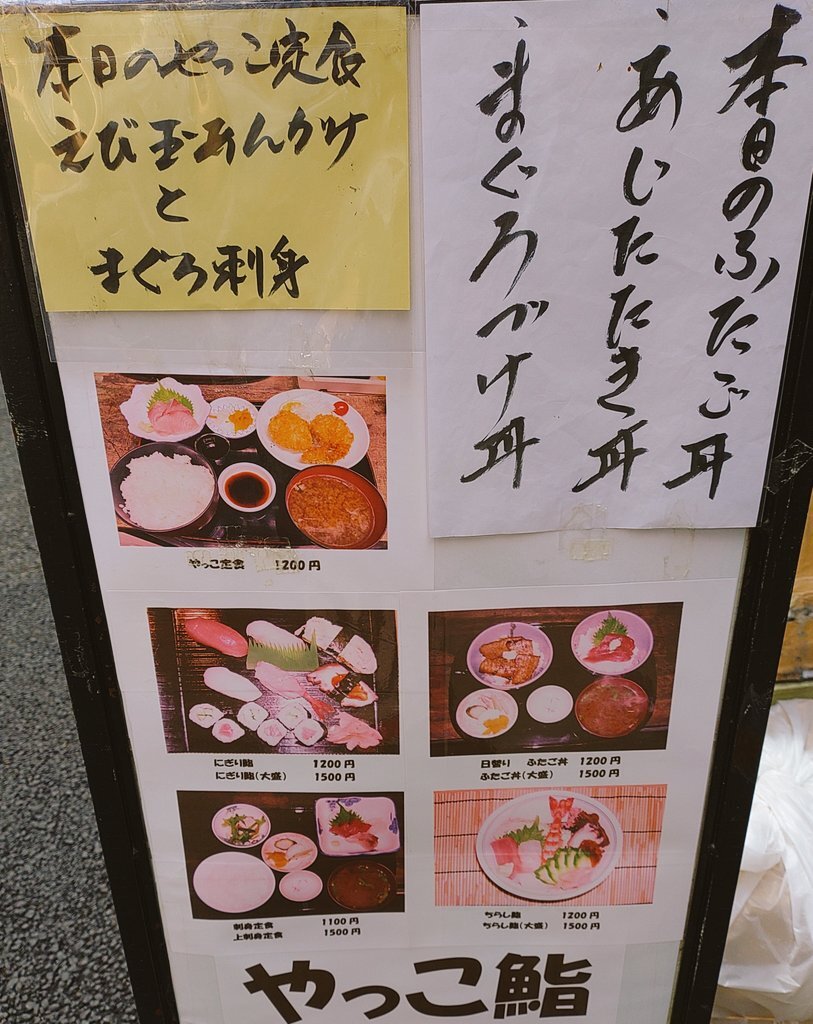 本日のやっこ定食
えび玉あんかけ
と
まぐろ刺身
本日のふたご丼
あじたたき丼
まぐろづけ丼
やっこ定食 1200円
にぎり鮨 1200円
にぎり鮨(大盛) 1500円
日替り ふたご丼 1200円
ふたご丼(大盛) 1500円
刺身定食 1100円
上刺身定食 1500円
ちらし鮨 1200円
ちらし鮨(大盛) 1500円
やっこ鮨